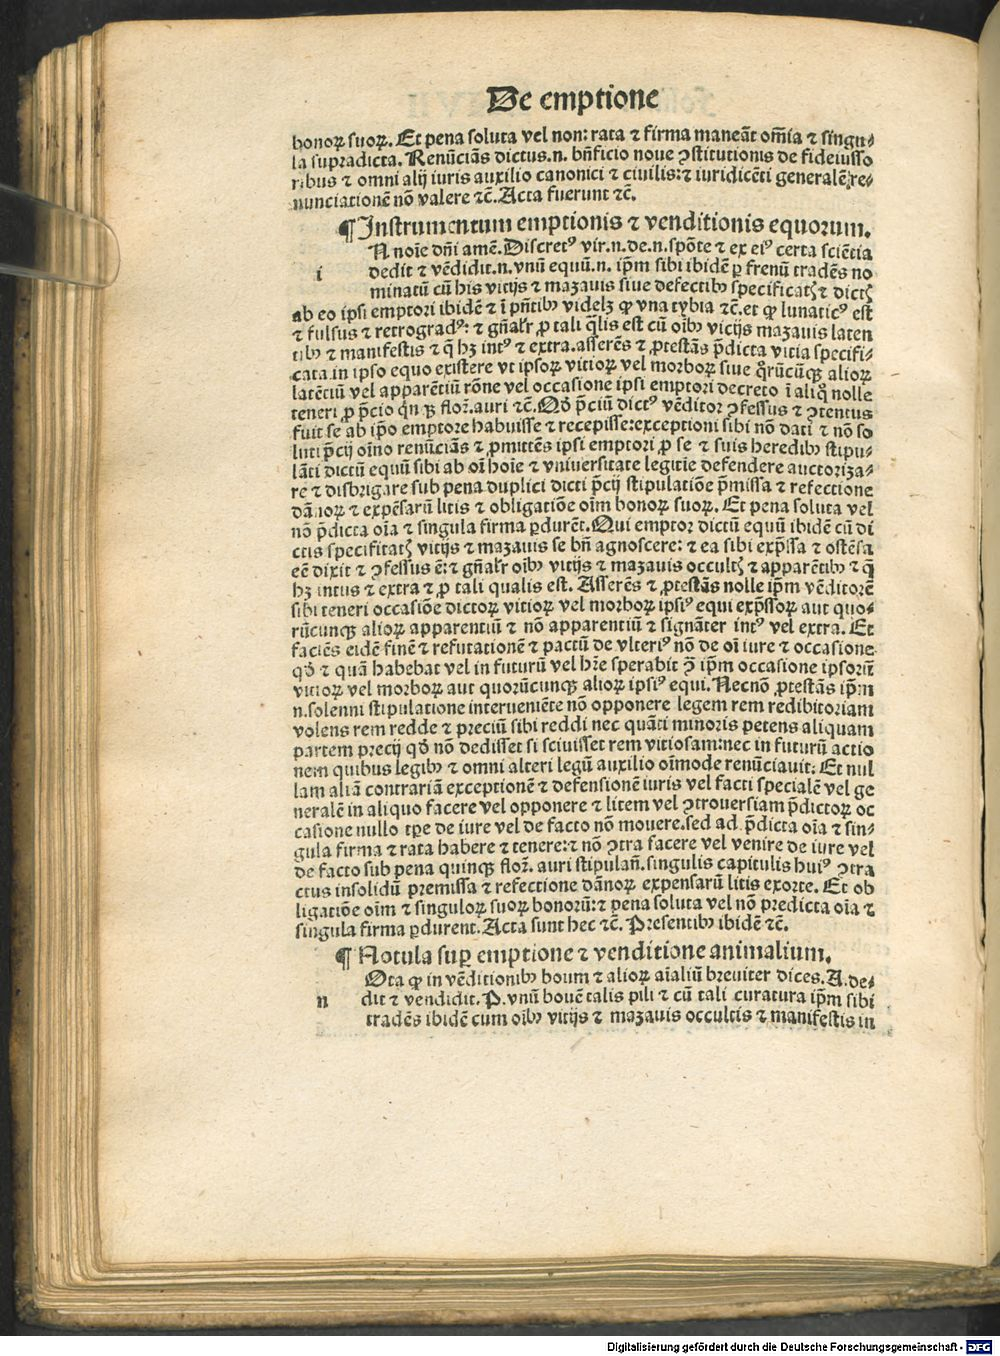 De emptione
honoꝝ suoꝝ. Et pena soluta vel non: rata ⁊ firma maneãt om̃ia ⁊ singu⸗
la supradicta. Renũciãs dictus .n. bñficio noue ꝯstitutionis de fideiusso
ribus ⁊ omni alij iuris auxilio canonici ⁊ ciuilis: ⁊ iuridicẽti generalẽ re⸗
nunciationẽ nõ valere ⁊c̃. Acta fuerunt ⁊c̃.
¶ Instrumentum emptionis ⁊ venditionis equorum.
N noĩe dñi amẽ. Discretꝰ vir .n. de .n. spõte ⁊ ex eiꝰ certa sciẽtia
i dedit ⁊ vẽdidit .n. vnũ equũ .n. ip̃m sibi ibidẽ ꝑ frenũ tradẽs no
minatũ cũ his vitijs ⁊ mazauis siue defectibꝰ specificatꝭ ⁊ dictꝭ
ab eo ipsi emptori ibidẽ ⁊ ĩ pñtibꝰ videlꝫ ꝙ vna tybia ⁊c̃. et ꝙ lunaticꝰ est
⁊ fulsus ⁊ retrogradꝰ: ⁊ gñalr̃ ꝓ tali q̃lis est cũ oĩbꝰ vicijs mazauis laten
tibꝰ ⁊ manifestis ⁊ q̃ hꝫ intꝰ ⁊ extra. asserẽs ⁊ ꝓtestãs p̃dicta vitia specifi⸗
cata in ipso equo existere vt ipsoꝝ vitioꝝ vel morboꝝ siue q̃rũcũqꝫ alioꝝ
latẽtiũ vel apparẽtiũ rõne vel occasione ipsi emptori decreto ĩ aliq̃ nolle
teneri ꝓ p̃cio q̃n qꝫ floꝝ. auri ⁊c̃. Qđ p̃ciũ dictꝰ vẽditor ꝯfessus ⁊ ꝯtentus
fuit se ab ip̃o emptore habuisse ⁊ recepisse: exceptioni sibi nõ dati ⁊ nõ so
luti p̃cij oĩno renũciãs ⁊ ꝓmittẽs ipsi emptori ꝓ se ⁊ suis heredibꝰ stipu⸗
lãti dictũ equũ sibi ab oĩ hoĩe ⁊ vniuersitate legitĩe defendere auctoriza⸗
re ⁊ disbrigare sub pena duplici dicti p̃cij stipulatiõe p̃missa ⁊ refectione
dãnoꝝ ⁊ expẽsarũ litis ⁊ obligatiõe oĩm bonoꝝ suoꝝ. Et pena soluta vel
nõ p̃dicta oĩa ⁊ singula firma ꝑdurẽt. Qui emptor dictũ equũ ibidẽ cũ di
ctis specifitatꝭ vitijs ⁊ mazauis se bñ agnoscere: ⁊ ea sibi exp̃ssa ⁊ ostẽsa
eẽ dixit ⁊ ꝯfessus ẽ: ⁊ gñalr̃ oĩbꝰ vitijs ⁊ mazauis occultꝭ ⁊ apparẽtibꝰ ⁊ q̃
hꝫ intus ⁊ extra ⁊ ꝓ tali qualis est. Asserẽs ⁊ ꝓtestãs nolle ip̃m vẽditorẽ
sibi teneri occasiõe dictoꝝ vitioꝝ vel morboꝝ ipsiꝰ equi exp̃ssoꝝ aut quo⸗
rũcunqꝫ alioꝝ apparentiũ ⁊ nõ apparentiũ ⁊ signãter intꝰ vel extra. Et
faciẽs eidẽ finẽ ⁊ refutationẽ ⁊ pactũ de vlteriꝰ nõ de oĩ iure ⁊ occasione
qđ ⁊ quã habebat vel in futurũ vel hr̃e sperabit ꝯ̃ ip̃m occasione ipsorũ
vitioꝝ vel morboꝝ aut quorũcunqꝫ alioꝝ ipsiꝰ equi. Necnõ ꝓtestãs ip̃m
n. solenni stipulatione interueniẽte nõ opponere legem rem redibitoriam
volens rem redde ⁊ preciũ sibi reddi nec quãti minoris petens aliquam
partem precij qđ nõ dedisset si sciuisset rem vitiosam: nec in futurũ actio
nem quibus legibꝰ ⁊ omni alteri legũ auxilio oĩmode renũciauit: Et nul
lam aliã contrariã exceptionẽ ⁊ defensionẽ iuris vel facti specialẽ vel ge
neralẽ in aliquo facere vel opponere ⁊ litem vel ꝯtrouersiam p̃dictoꝝ oc
casione nullo tꝑe de iure vel de facto nõ mouere. sed ad p̃dicta oĩa ⁊ sin⸗
gula firma ⁊ rata habere ⁊ tenere: ⁊ nõ ꝯtra facere vel venire de iure vel
de facto sub pena quinqꝫ floꝝ. auri stipulañ. singulis capitulis huiꝰ ꝯtra
ctus insolidũ premissa ⁊ refectione dãnoꝝ expensarũ litis exorte. Et ob
ligatiõe oĩm ⁊ singuloꝝ suoꝝ bonorũ: ⁊ pena soluta vel nõ predicta oĩa ⁊
singula firma ꝑdurent. Acta sunt hec ⁊c̃. Presentibꝰ ibidẽ ⁊c̃.
¶ Notula suꝑ emptione ⁊ venditione animalium.
Ota ꝙ in vẽditionibꝰ boum ⁊ alioꝝ aĩaliũ breuiter dices. A. de⸗
n dit ⁊ vendidit. P. vnũ bouẽ talis pili ⁊ cũ tali curatura ip̃m sibi
tradẽs ibidẽ cum oĩbꝰ vitijs ⁊ mazauis occultis ⁊ manifestis in
Digitalisierung gefördert durch die Deutsche Forschungsgemeinschaft - DFG